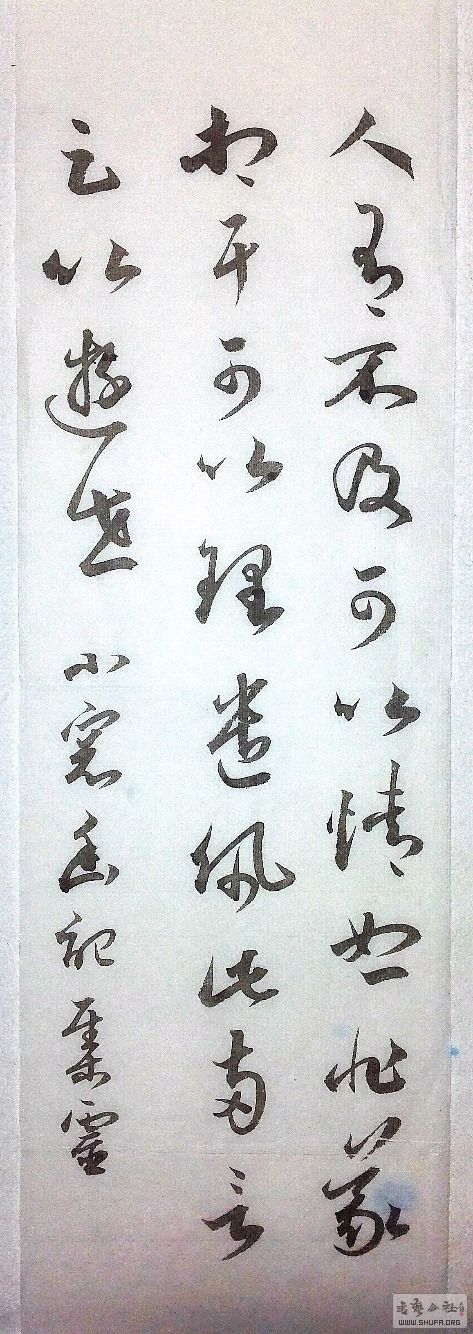 人有不及可以情恕非義
相干可以理遣佩此兩言
足以遊世 小窗幽記集靈
書藝公社
WWW.SHUFA.ORG